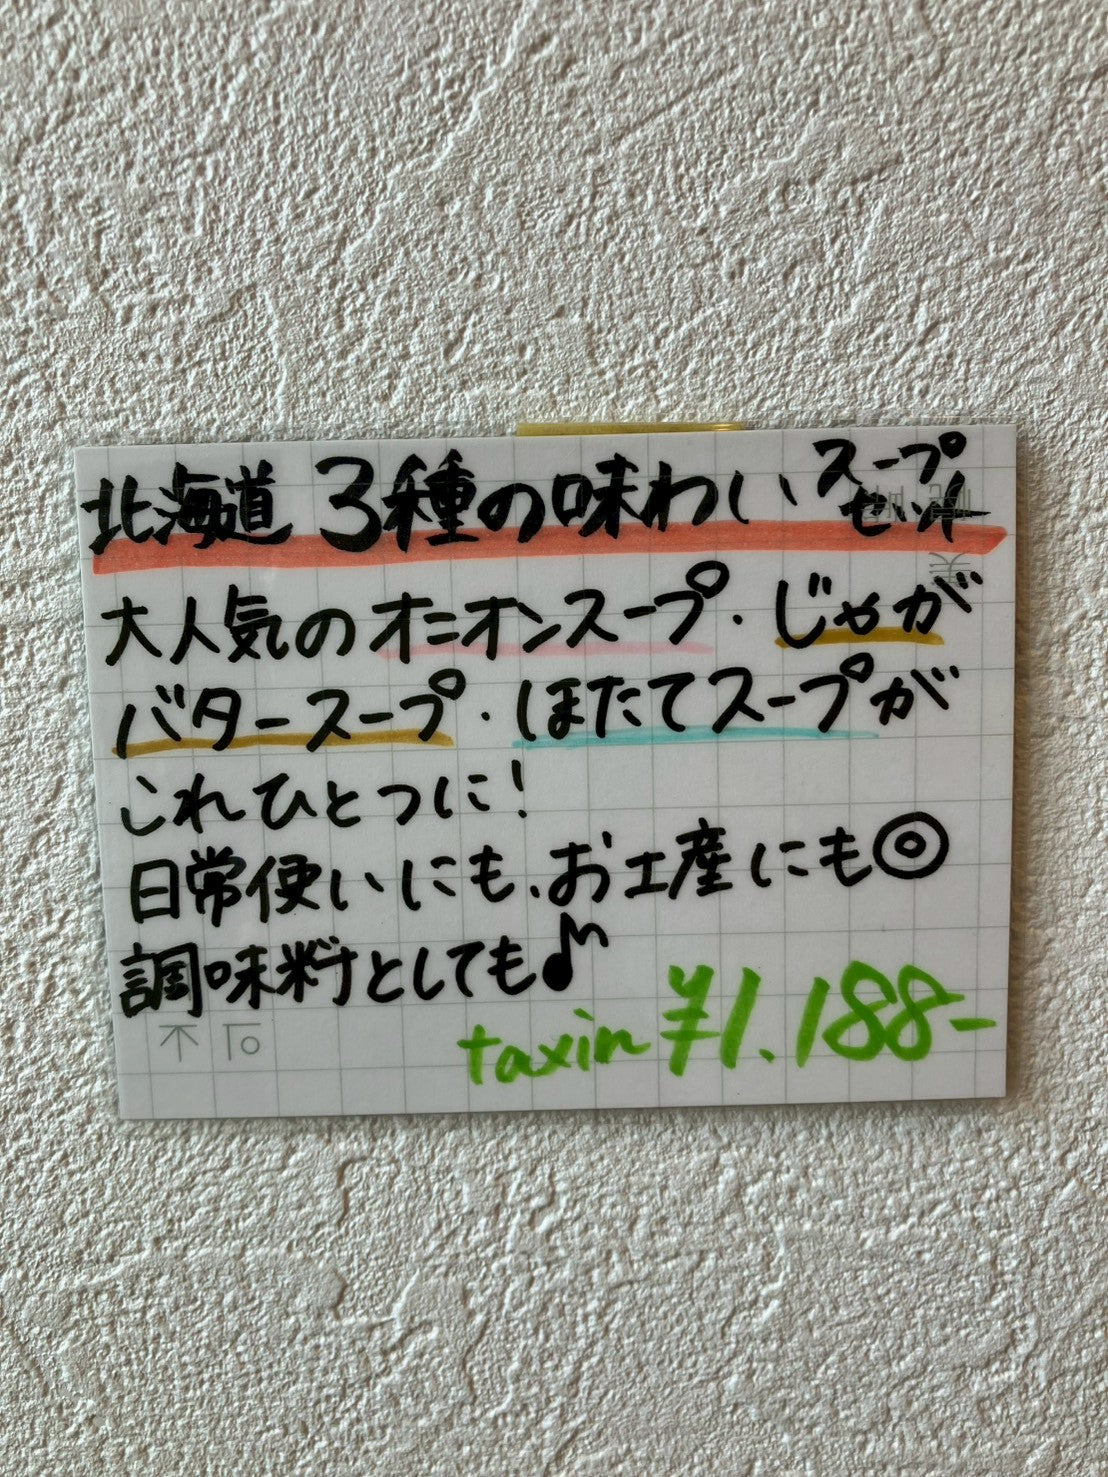 北海道 3種の味わい スープセット
大人気のオニオンスープ・じゃが
バタースープ・ほたてスープが
これひとつに!
日常使いにも、お土産にも◎
調味料としても♪
taxin ¥1.188-